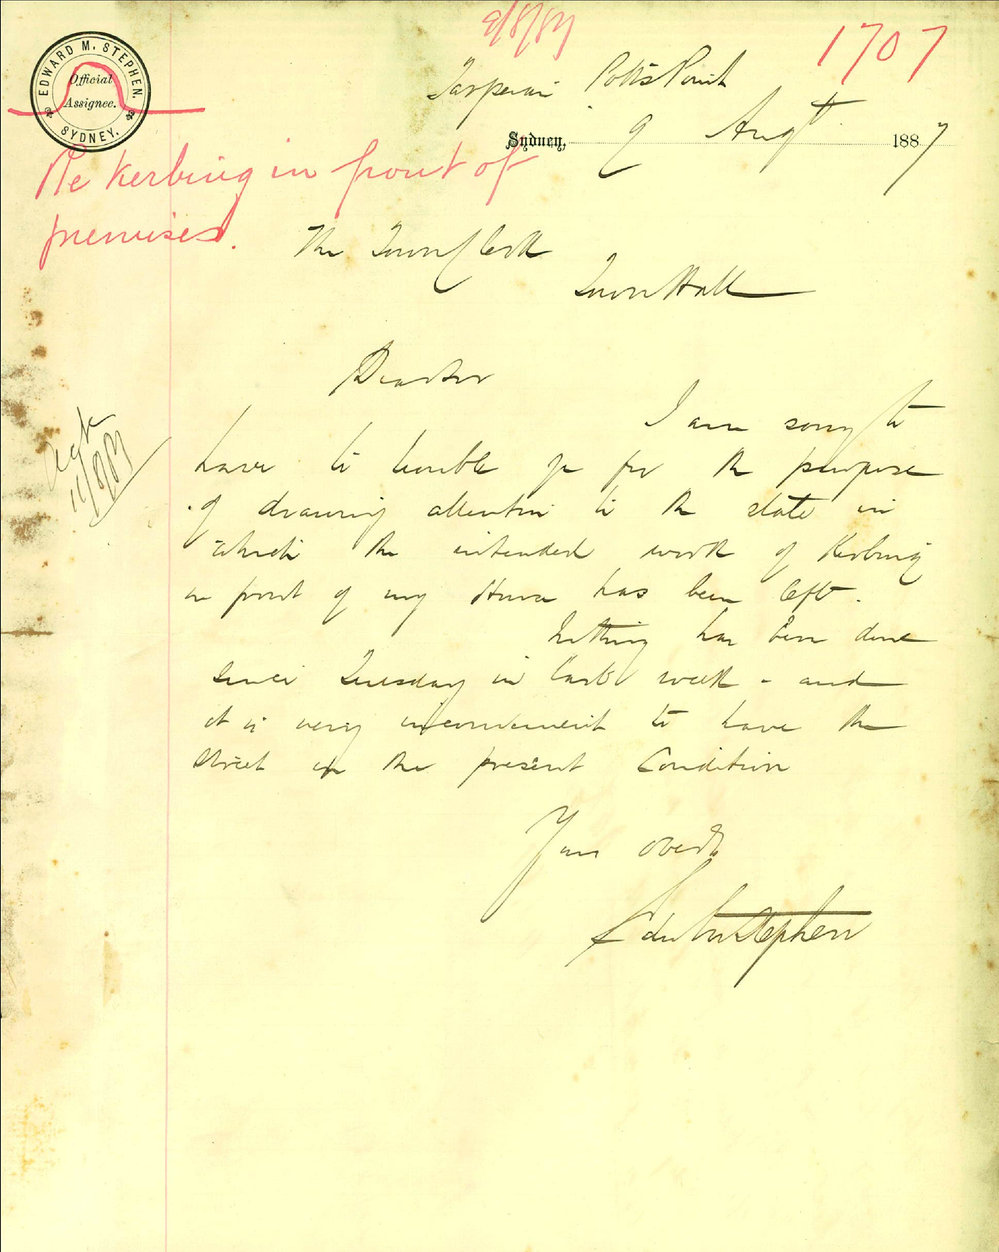 9/8/87
1707
EDWARD M. STEPHEN.
Official
Assignee.
SYDNEY.
Potts Point
Sydney, 9 Augt 1887
Re Kerbing in front of
premises.
The Town Clerk
Town Hall
Dear Sir
I am sorry to
have to trouble you for the purpose
of drawing attention to the state in
which the intended work of Kerbing
in front of my House has been left.
Nothing has been done
since Tuesday in last week - and
it is very inconvenient to have the
street in the present Condition
Yours obedtly
Edw M Stephen
ack
11/8/87